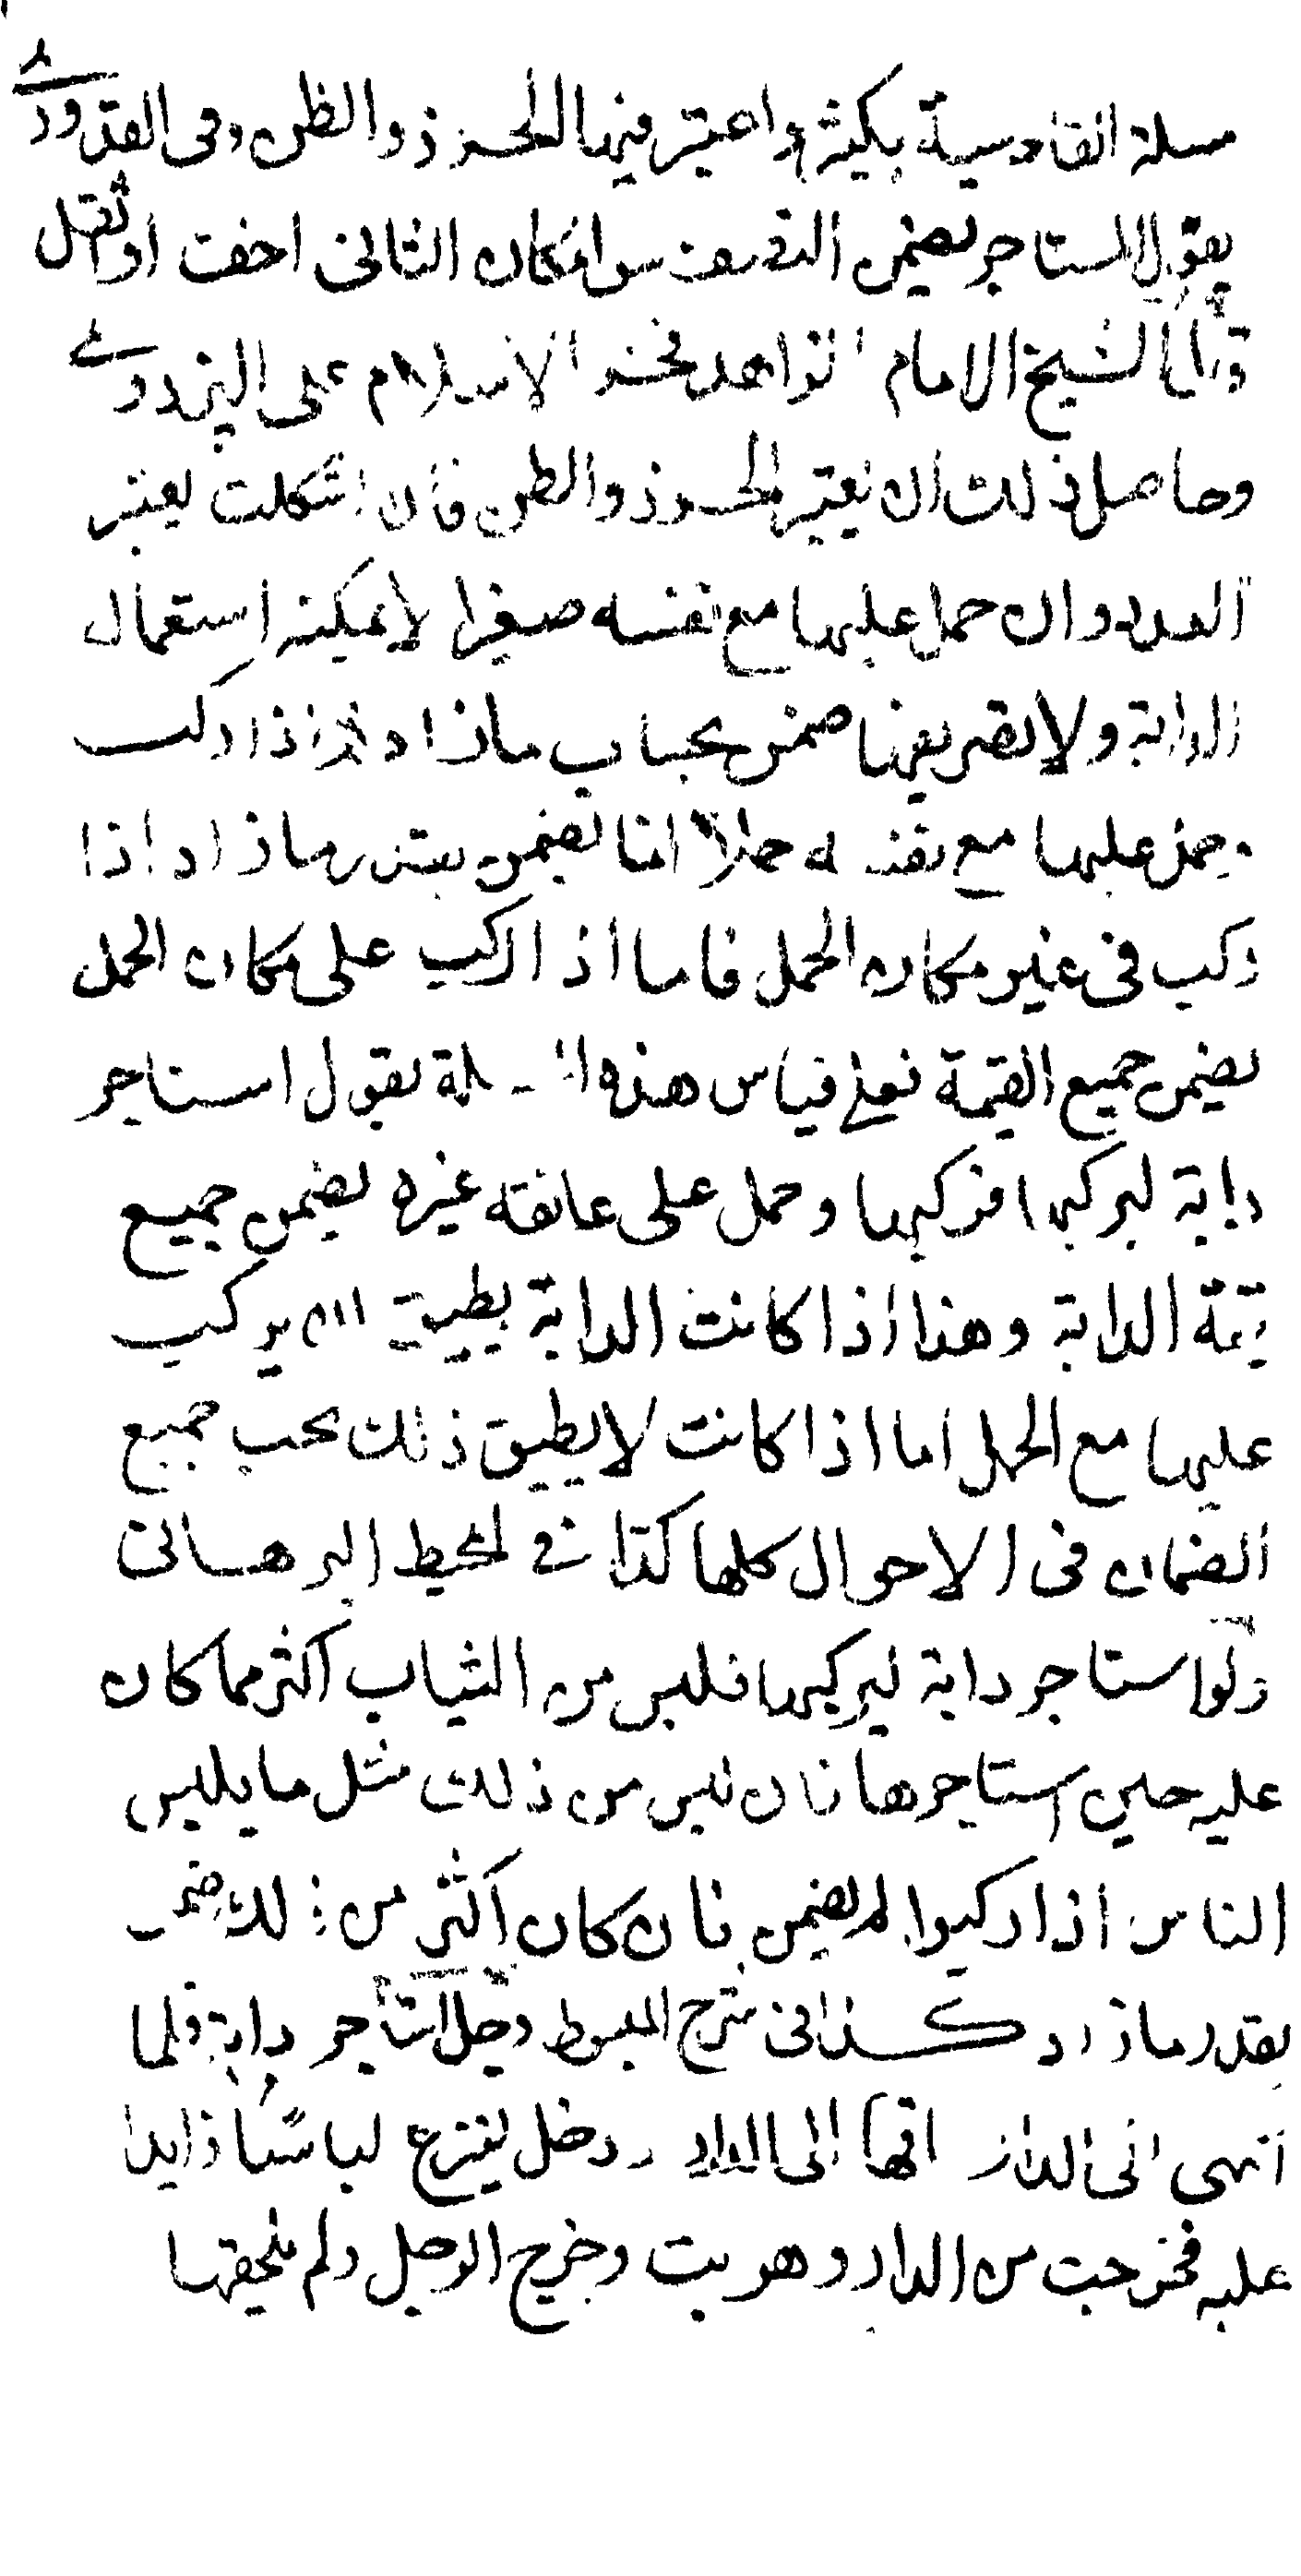 مسلة القادسية بكيثرة واعتبر فيها الحزر والظن وفى القدورى
يقول المستاجر يضمن النصف سوا كان الثانى اخف او اثقل
قال الشيخ الامام الزاهد فخر الاسلام على البزدوى
وحاصل ذلك ان يعتبر الحزر والظن فان اشكلت يعتبر
العدد وان حمل عليها مع نفسه صغيرا لا يمكنه استعمال
الدابة ولا تصريفها ضمن بحساب ما زاد اذا ركب
وحمل عليها مع نفسه حملا انما يضمن بقدر ما زاد اذا
ركب فى غير مكان الحمل فاما اذا ركب على مكان الحمل
يضمن جميع القيمة فعلى قياس هذه المسلة يقول استاجر
دابة ليركبها فركبها وحمل على عاتقه غيره يضمن جميع
قيمة الدابة وهذا اذا كانت الدابة يطيق ان يركب
عليها مع الحمل اما اذا كانت لا يطيق ذلك يجب جميع
الضمان فى الاحوال كلها كذا فى المحيط البرهانى
ولو استاجر دابة ليركبها فلبس من الثياب اكثر مما كان
عليه حين استاجرها فان لبس من ذلك مثل ما يلبس
الناس اذا ركبوا لم يضمن فان كان اكثر من ذلك ضمن
بقدر ما زاد كذا فى شرح المبسوط رجل استاجر دابة فلما
انتهى الى الدار اتها الى الدار ودخل لينزع لباسا زايدا
عليه فخرجت من الدار وهربت وخرج الرجل ولم يلحقها